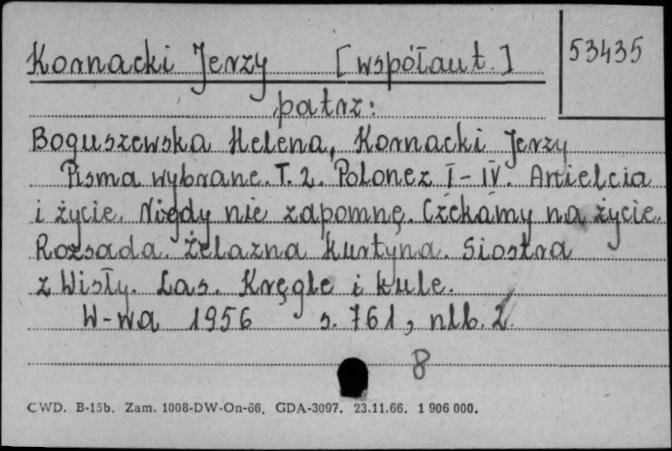 Kornacki Jerzy [współaut.] 53435
patrz:
Boguszewska Helena, Kornacki Jerzy
Pisma wybrane. T. 2. Polonez I-IV. Anielcia
i życie. Nigdy nie zapomnę. Czekamy na życie.
Rozsada. Żelazna kurtyna. Siostra
z Wisły. Las. Kręgle i kule.
W-wa 1956 s. 761, nlb. 2
8
CWD. B-15b. Zam. 1008-DW-On-66. GDA-3097. 23.11.66. 1 906 000.